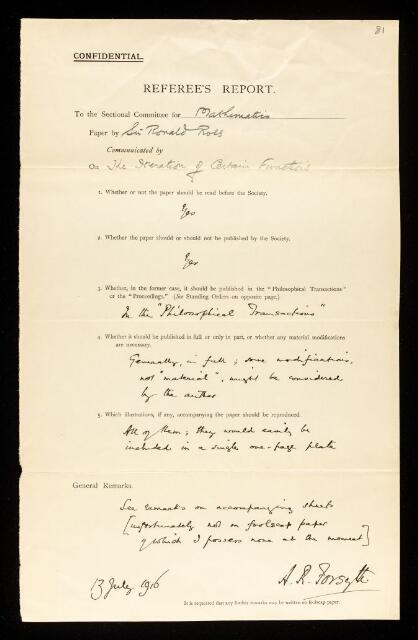 81
CONFIDENTIAL.
REFEREE'S REPORT.
To the Sectional Committee for Mathematics
Paper by Sir Ronald Ross
Communicated by
On The Iteration of Certain Functions
1. Whether or not the paper should be read before the Society.
Yes
2. Whether the paper should or should not be published by the Society.
Yes
3. Whether, in the former case, it should be published in the "Philosophical Transactions"
or the "Proceedings." (See Standing Orders on opposite page.)
In the "Philosophical Transactions"
4. Whether it should be published in full or only in part, or whether any material modifications
are necessary.
Generally, in full; some modifications,
not "material", might be considered
by the author
5. Which illustrations, if any, accompanying the paper should be reproduced.
All of them; they would easily be
included in a single one-page plate
General Remarks.
See remarks on accompanying sheets
[unfortunately not on foolscap paper
of which I possess none at the moment]
13 July 1916
A. R. Forsyth
It is requested that any further remarks may be written on foolscap paper.